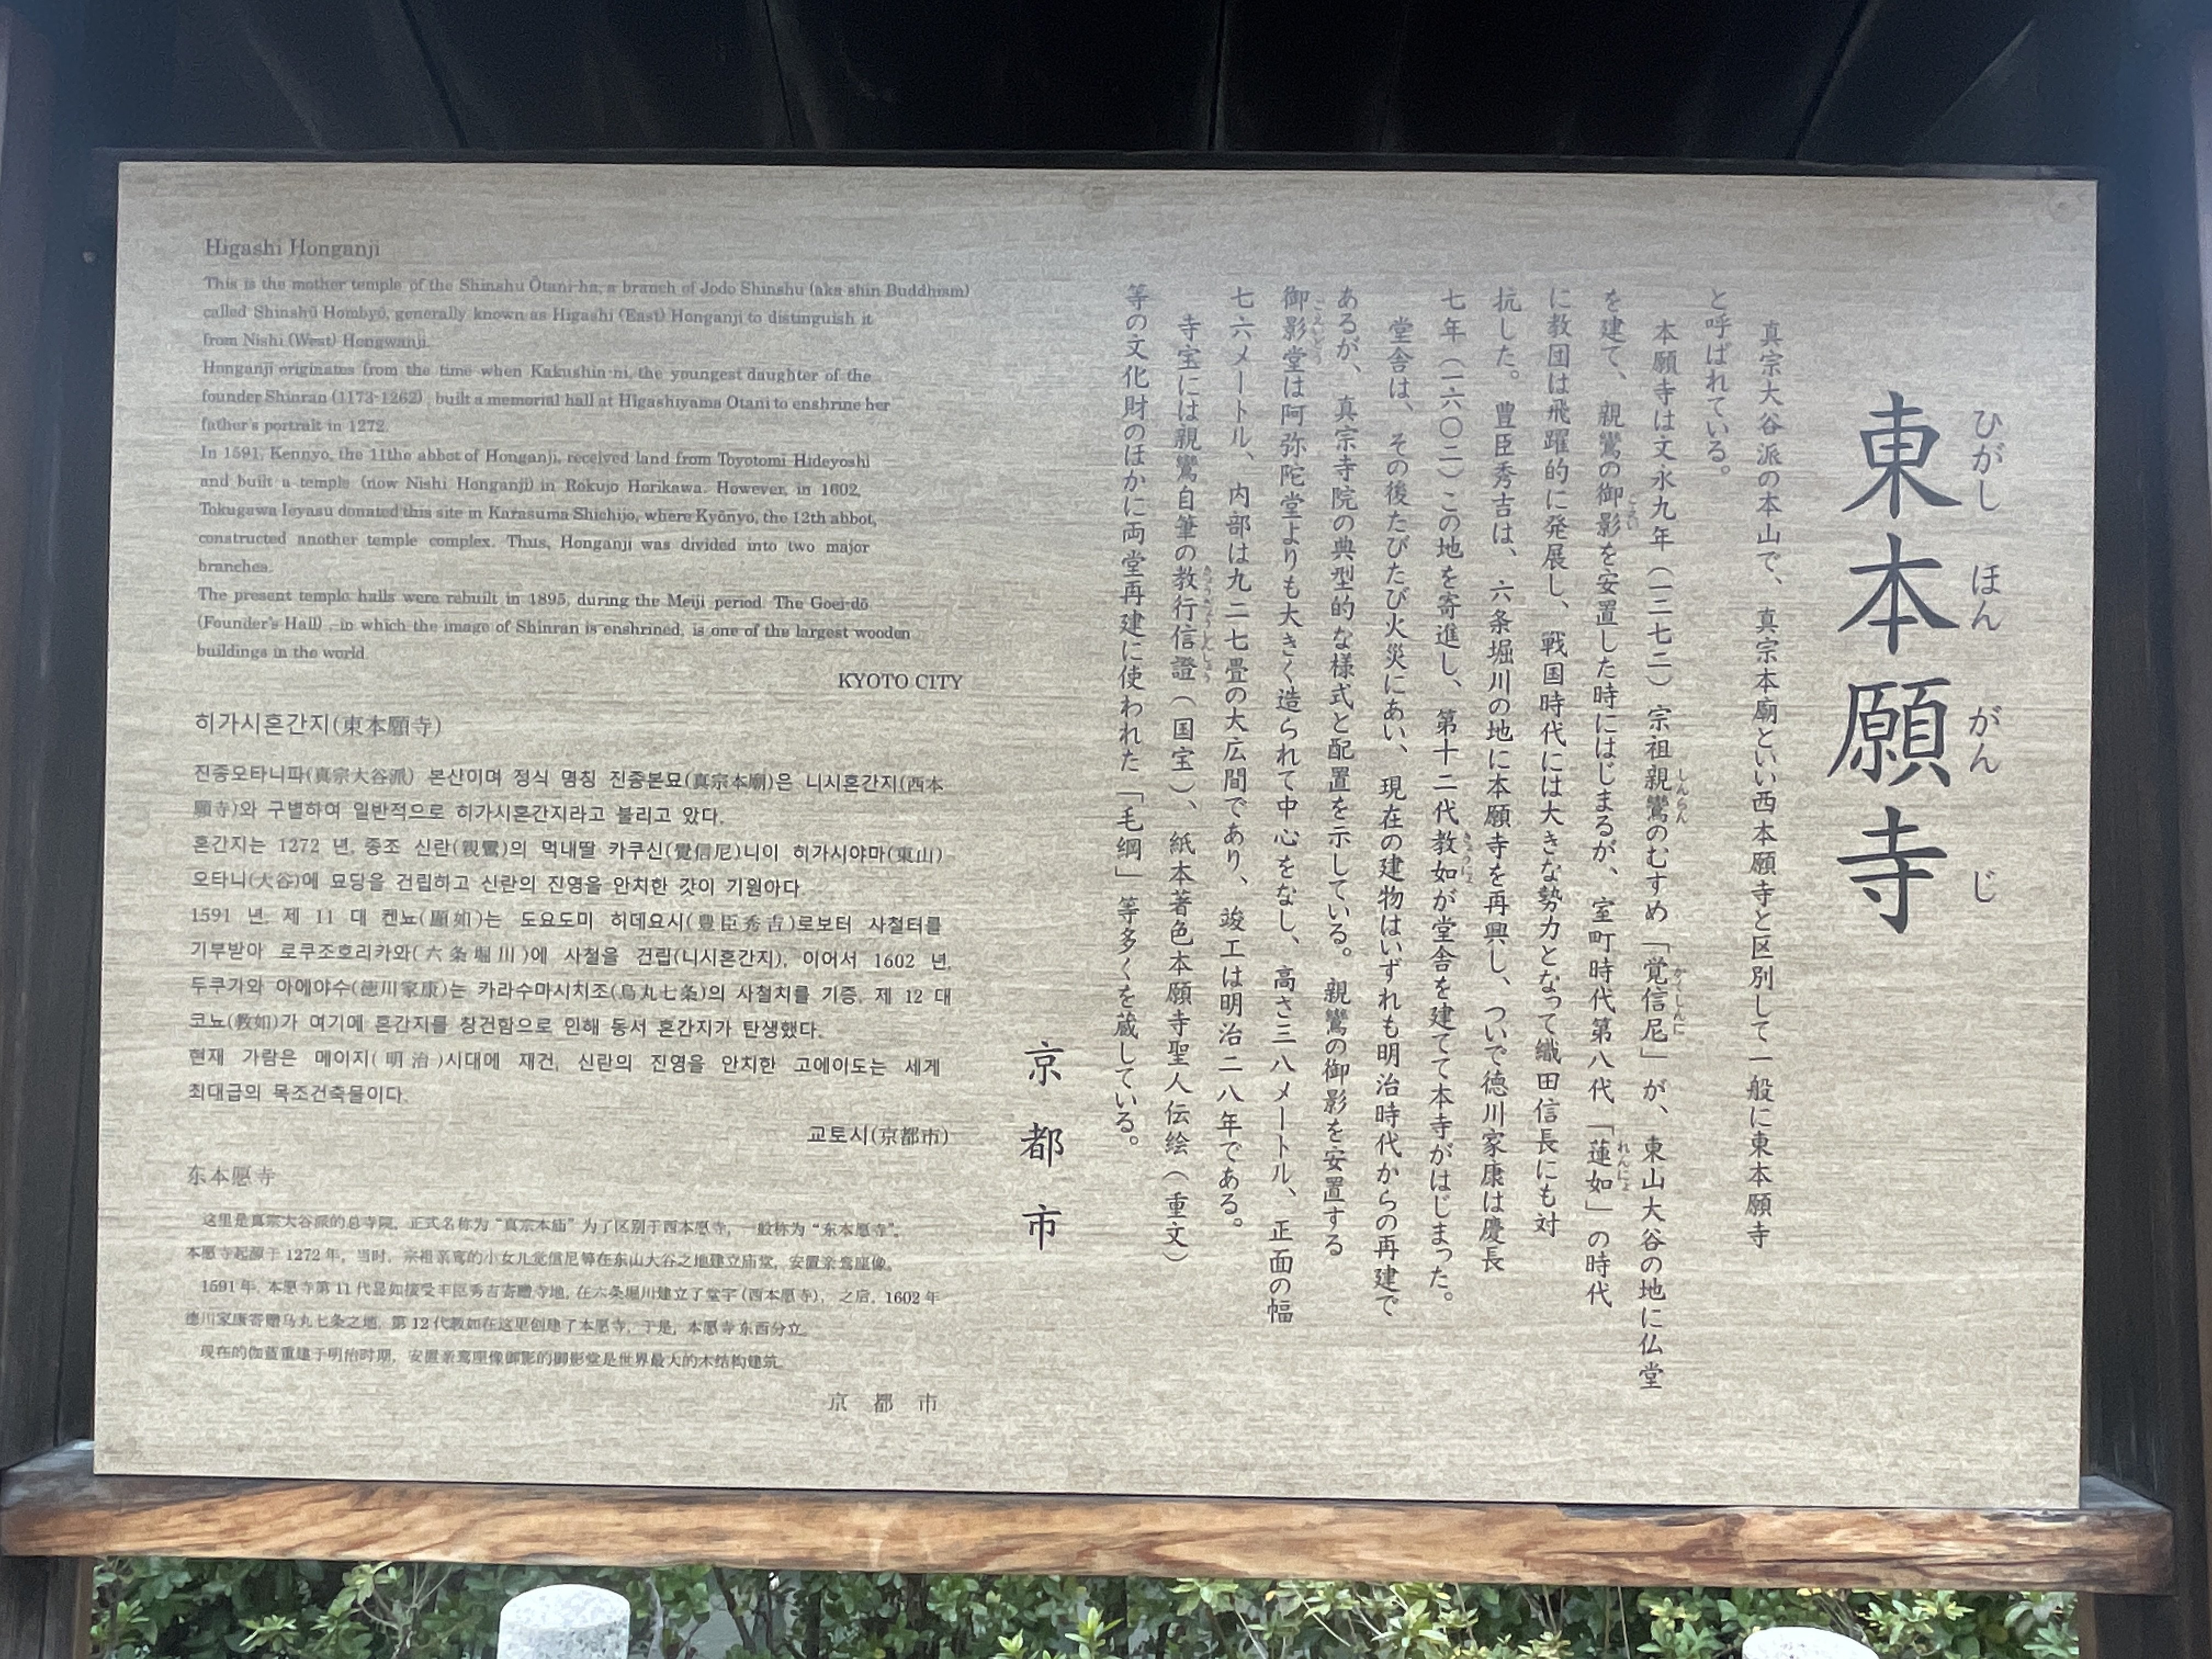 東本願寺
ひがし ほん がん じ
真宗大谷派の本山で、真宗本廟といい西本願寺と区別して一般に東本願寺
と呼ばれている。
本願寺は文永九年(一二七二)宗祖親鸞のむすめ「覚信尼」が、東山大谷の地に仏堂
を建て、親鸞の御影を安置した時にはじまるが、室町時代第八代「蓮如」の時代
に教団は飛躍的に発展し、戦国時代には大きな勢力となって織田信長にも対
抗した。豊臣秀吉は、六条堀川の地に本願寺を再興し、ついで徳川家康は慶長
七年(一六〇二)この地を寄進し、第十二代教如が堂舎を建てて本寺がはじまった。
堂舎は、その後たびたび火災にあい、現在の建物はいずれも明治時代からの再建で
あるが、真宗寺院の典型的な様式と配置を示している。親鸞の御影を安置する
御影堂は阿弥陀堂よりも大きく造られて中心をなし、高さ三八メートル、正面の幅
七六メートル、内部は九二七畳の大広間であり、竣工は明治二八年である。
寺宝には親鸞自筆の教行信證(国宝)、紙本著色本願寺聖人伝絵(重文)
等の文化財のほかに両堂再建に使われた「毛綱」等多くを蔵している。
京都市
Higashi Honganji
This is the mother temple of the Shinshu Ōtani-ha, a branch of Jodo Shinshu (aka shin Buddhism)
called Shinshū Hombyō, generally known as Higashi (East) Honganji to distinguish it
from Nishi (West) Hongwanji.
Honganji originates from the time when Kakushin-ni, the youngest daughter of the
founder Shinran (1173-1262), built a memorial hall at Higashiyama Otani to enshrine her
father's portrait in 1272.
In 1591, Kennyo, the 11the abbot of Honganji, received land from Toyotomi Hideyoshi
and built a temple (now Nishi Honganji) in Rokujo Horikawa. However, in 1602,
Tokugawa Ieyasu donated this site in Karasuma Shichijo, where Kyōnyo, the 12th abbot,
constructed another temple complex. Thus, Honganji was divided into two major
branches.
The present temple halls were rebuilt in 1895, during the Meiji period. The Goei-dō
(Founder's Hall), in which the image of Shinran is enshrined, is one of the largest wooden
buildings in the world.
KYOTO CITY
히가시혼간지(東本願寺)
진종오타니파(真宗大谷派) 본산이며 정식 명칭 진종본묘(真宗本廟)은 니시혼간지(西本
願寺)와 구별하여 일반적으로 히가시혼간지라고 불리고 았다.
혼간지는 1272 년, 종조 신란(親鸞)의 먹내딸 카쿠신(覺信尼)니이 히가시야마(東山)
오타니(大谷)에 묘당을 건립하고 신란의 진영을 안치한 갓이 기원아다.
1591 년, 제 11 대 켄뇨(顯如)는 도요도미 히데요시(豊臣秀吉)로보터 사철터를
기부받아 로쿠조호리카와(六条堀川)에 사철을 건립(니시혼간지), 이어서 1602 년,
두쿠가와 아에야수(徳川家康)는 카라수마시치조(烏丸七条)의 사철치를 기증, 제 12 대
코뇨(教如)가 여기에 혼간지를 창건함으로 인해 동서 혼간지가 탄생했다.
현재 가람은 메이지(明治)시대에 재건, 신란의 진영을 안치한 고에이도는 세게
최대급의 목조건축물이다.
교토시(京都市)
东本愿寺
这里是真宗大谷派的总寺院，正式名称为“真宗本庙”为了区别于西本愿寺，一般称为“东本愿寺”。
本愿寺起源于1272年，当时，宗祖亲鸾的小女儿觉信尼等在东山大谷之地建立庙堂，安置亲鸾座像。
1591年，本愿寺第11代显如接受丰臣秀吉寄赠寺地，在六条堀川建立了堂宇(西本愿寺)，之后，1602年
德川家康寄赠乌丸七条之地，第12代教如在这里创建了本愿寺，于是，本愿寺东西分立。
现在的伽蓝重建于明治时期，安置亲鸾座像御影的御影堂是世界最大的木结构建筑。
京都市